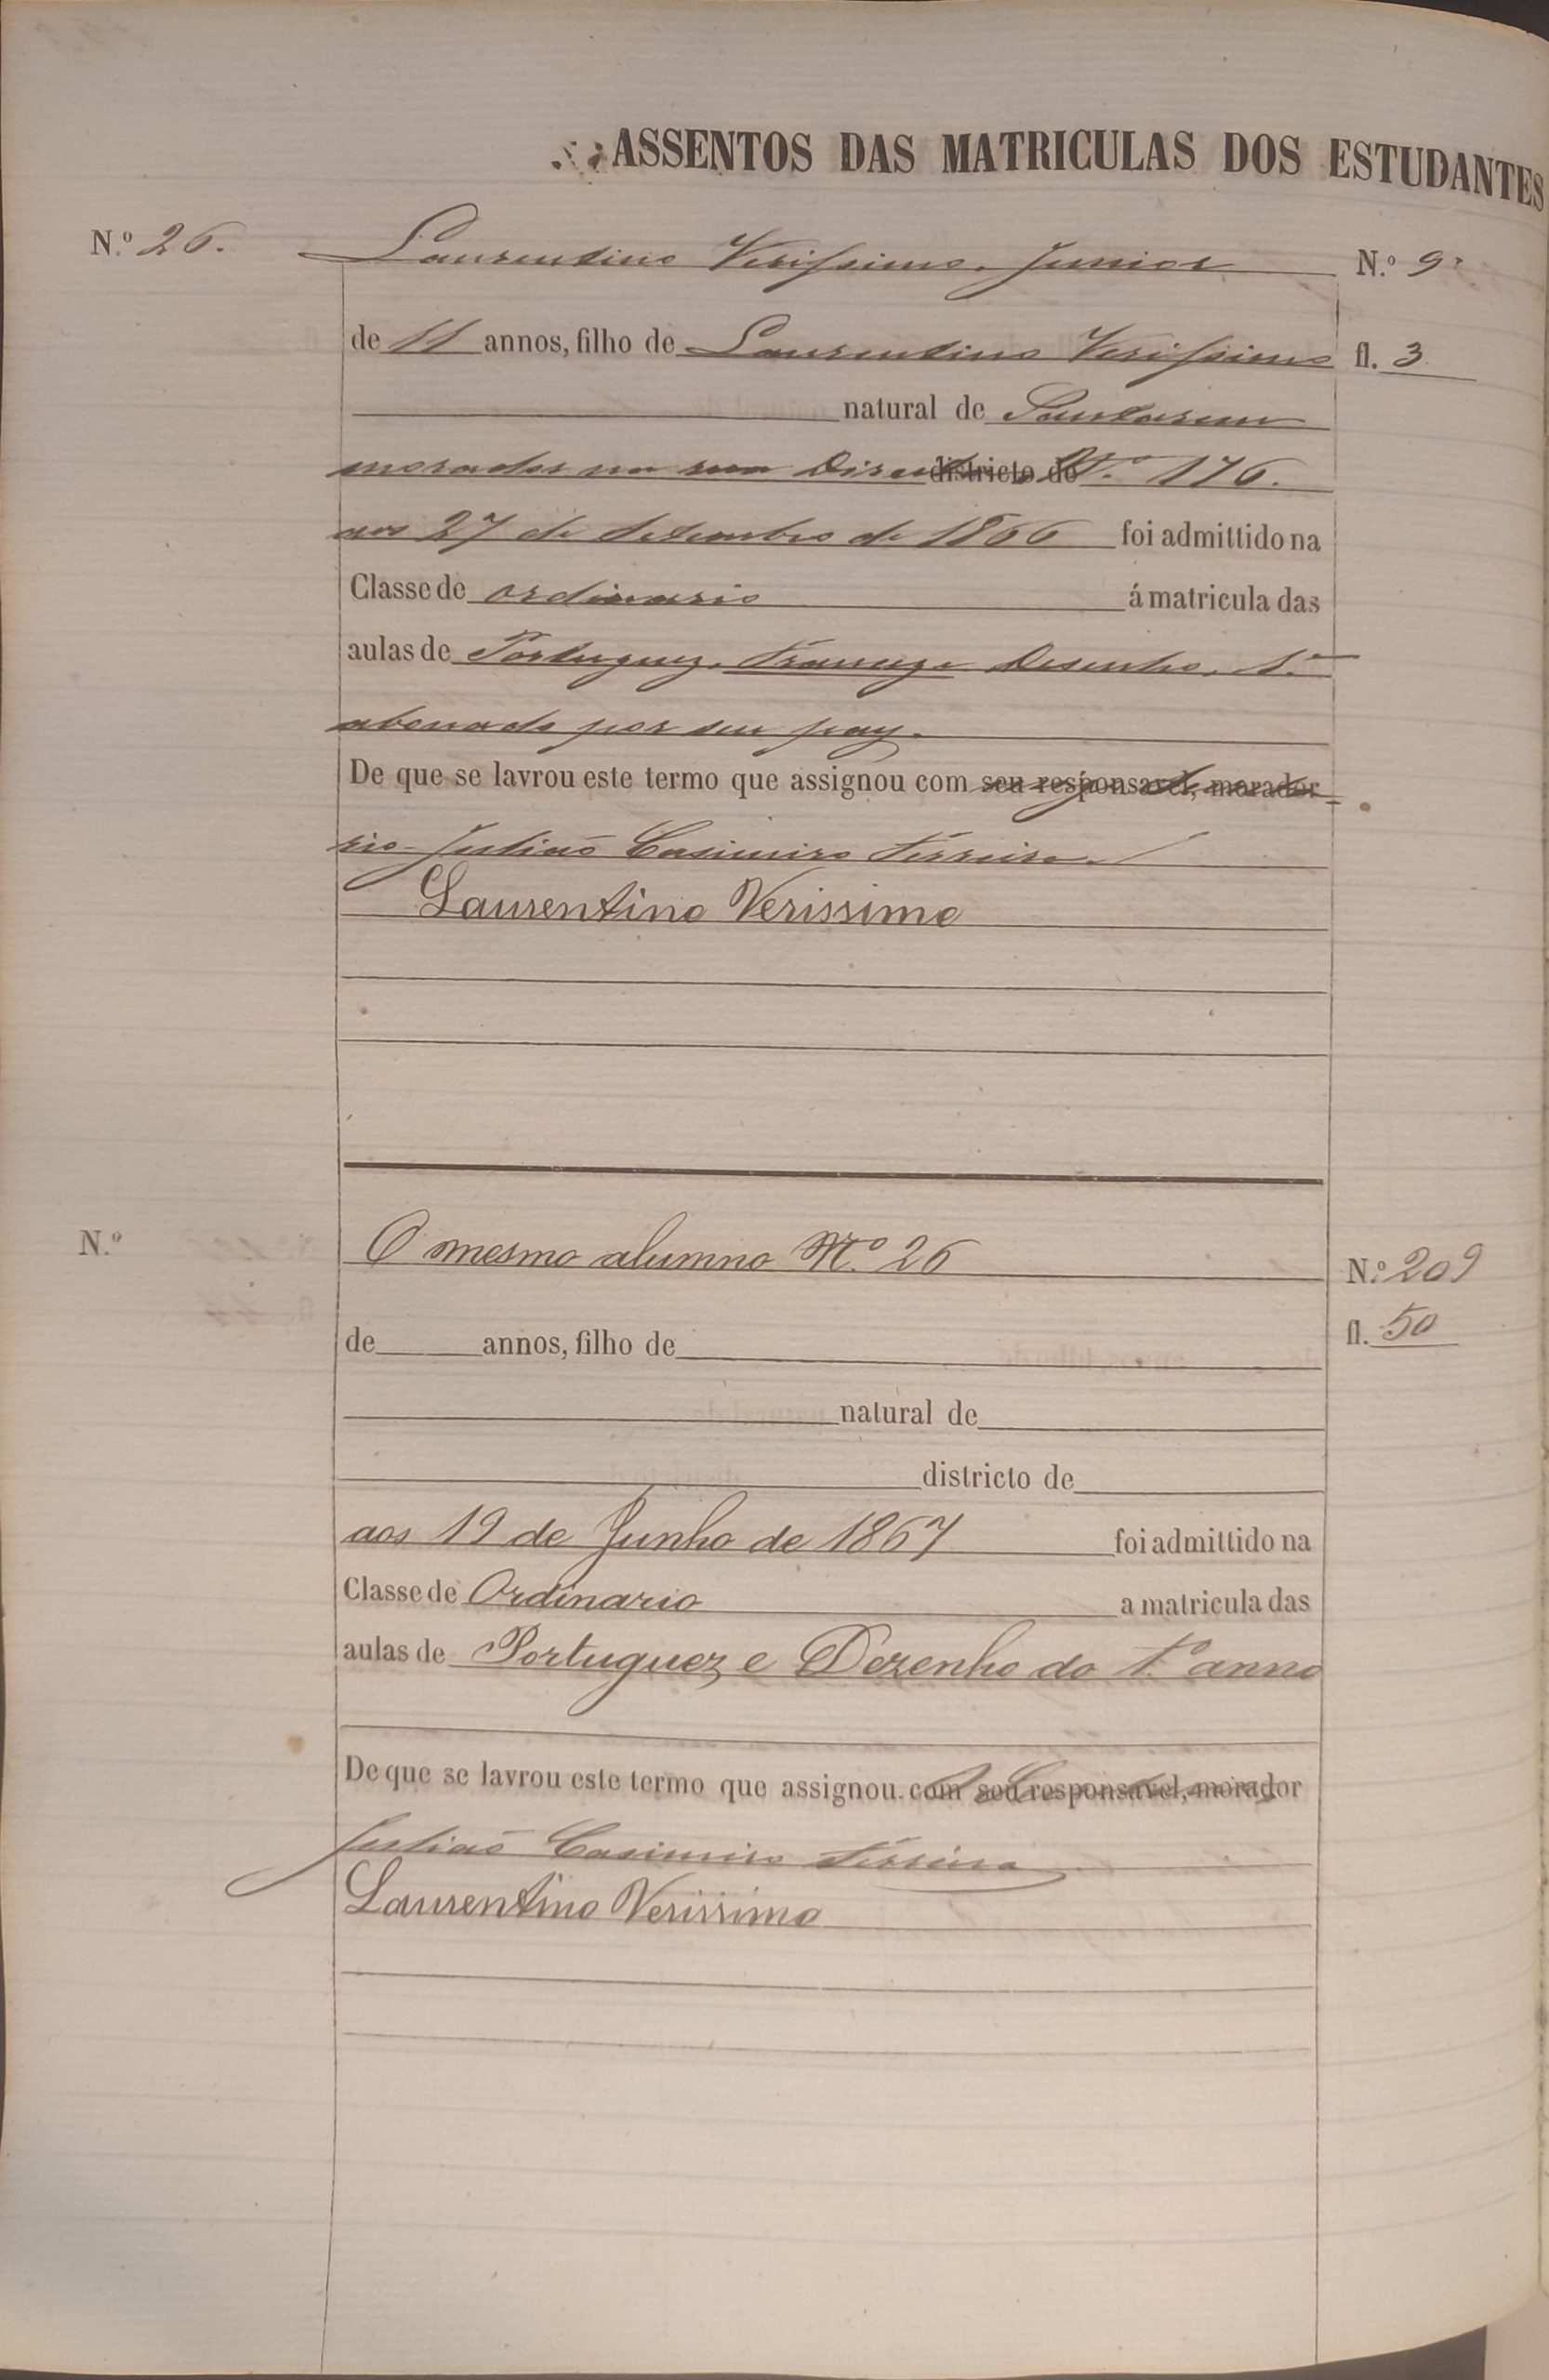 ASSENTOS DAS MATRICULAS DOS ESTUDANTES
N.º 26. Laurentino Verissimo Junior N.º 9
de 11 annos, filho de Laurentino Verissimo fl. 3
natural de Santarem
morador na rua Direita districto de N.º 176.
aos 27 de setembro de 1866 foi admittido na
Classe de ordinario á matricula das
aulas de Portuguez, Francez e Desenho, 1.º
abonado por seu pay.
De que se lavrou este termo que assignou com seu responsavel, morador
rio Julião Casimiro Ferreira.
Laurentino Verissimo
N.º O mesmo alumno N.º 26 N.º 209
de annos, filho de fl. 50
natural de
districto de
aos 19 de Junho de 1867 foi admittido na
Classe de Ordinario a matricula das
aulas de Portuguez e Dezenho do 1.º anno
De que se lavrou este termo que assignou com seu responsavel, morador
Julião Casimiro Ferreira
Laurentino Verissimo